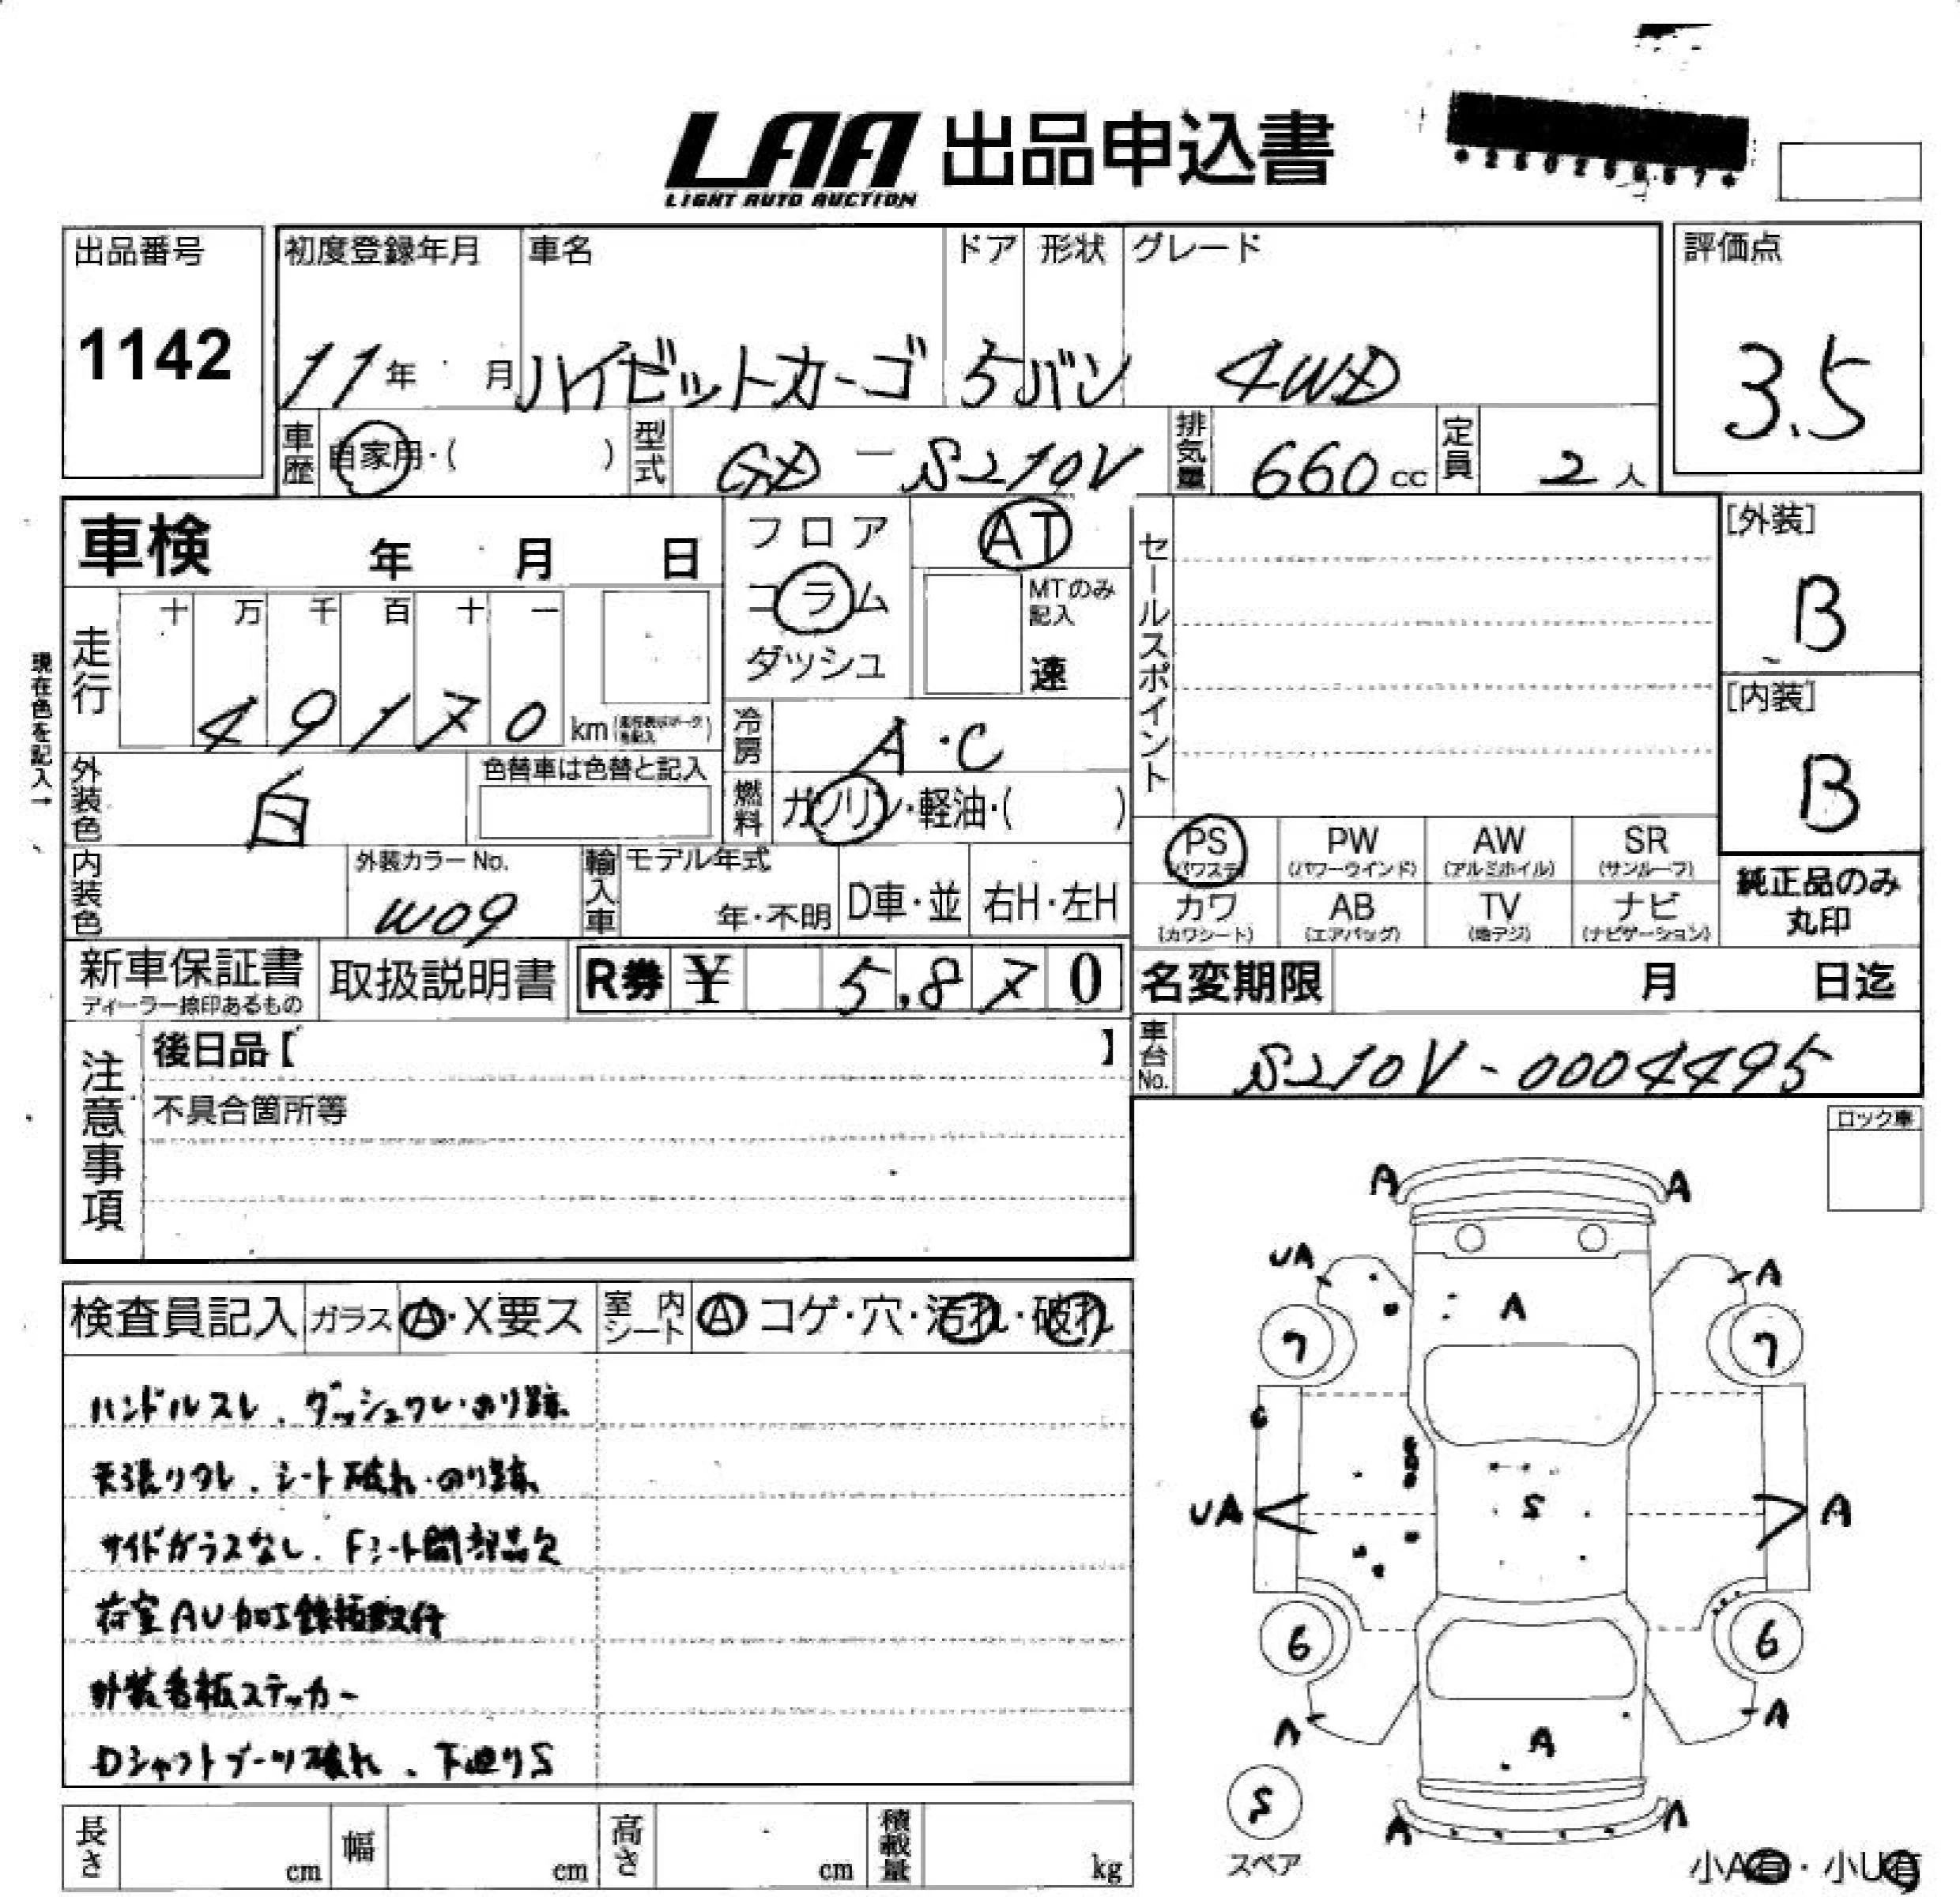 LAA 出品申込書
LIGHT AUTO AUCTION
出品番号
1142
初度登録年月 車名 ドア 形状 グレード
11年 月 ハイゼットカーゴ 5 バン 4WD
評価点
3.5
車歴 自家用・( ) 型式 GD-S210V 排気量 660cc 定員 2人
車検 年 月 日
フロア
コラム
ダッシュ
AT
MTのみ記入
速
セールスポイント
[外装]
B
[内装]
B
現在色を記入→
走行 十 万 千 百 十 一
49170 km
冷房 A・C
外装色 白 色替車は色替と記入
燃料 ガソリン・軽油・( )
内装色 外装カラーNo. W09
輸入車 モデル年式 年・不明 D車・並 右H・左H
PS PW AW SR
(パワステ) (パワーウインド) (アルミホイル) (サンルーフ)
カワ AB TV ナビ
(カワシート) (エアバッグ) (地デジ) (ナビゲーション)
純正品のみ
丸印
新車保証書 取扱説明書 R券 ¥ 5,870
ディーラー捺印あるもの
名変期限 月 日迄
車台No. S210V-0004495
注意事項
後日品【 】
不具合箇所等
ロック車
検査員記入 ガラス A・X要ス 室内シート A コゲ・穴・汚れ・破れ
ハンドルスレ、ダッシュワレ・のり跡
天張りワレ、シート破れ・のり跡
サイドガラスなし、Fシート間部品欠
荷室AU加工鉄板取付
外装看板ステッカー
Dシャフトブーツ破れ、下廻りS
A A
UA A
A
7 7
UA S A
6 6
A A A
S
スペア
A A
小A有・小U有
長さ cm 幅 cm 高さ cm 積載量 kg